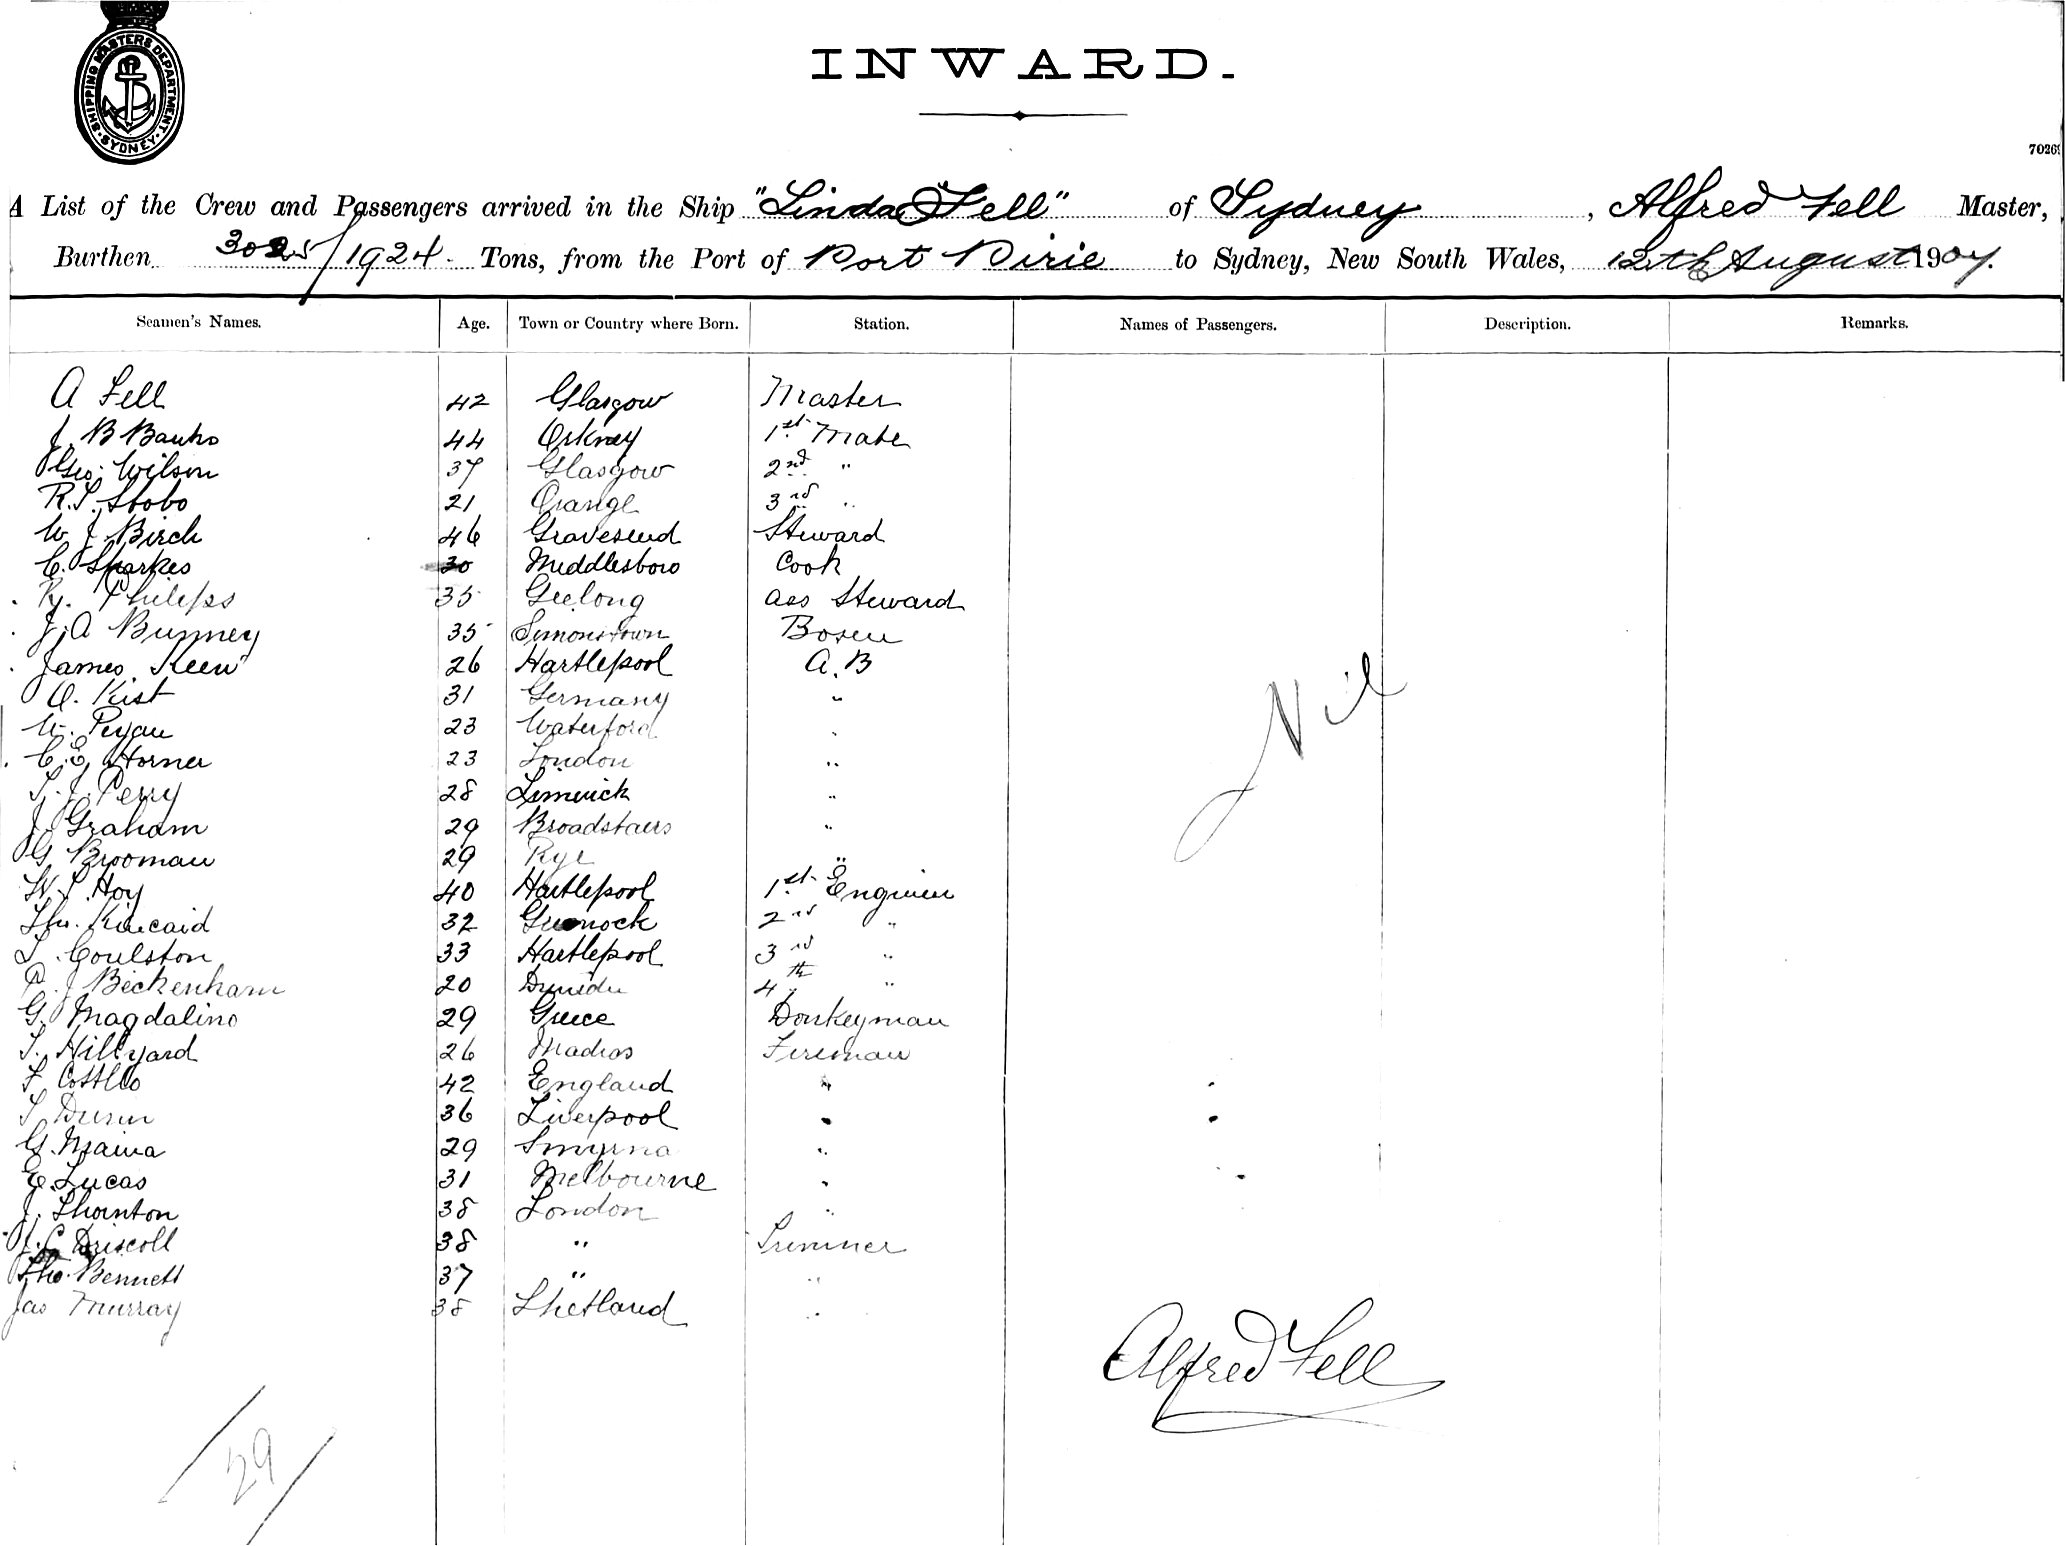 SHIPPING MASTERS DEPARTMENT · SYDNEY ·
INWARD.
7026
A List of the Crew and Passengers arrived in the Ship "Linda Fell" of Sydney, Alfred Fell Master,
Burthen 3025/1924 Tons, from the Port of Port Pirie to Sydney, New South Wales, 12th August 1907.
Seamen's Names. Age. Town or Country where Born. Station. Names of Passengers. Description. Remarks.
A Fell 42 Glasgow Master
J. B Banks 44 Orkney 1st Mate
Geo. Wilson 37 Glasgow 2nd "
R.S. Stobo 21 Orange 3rd "
W J Birch 46 Gravesend Steward
C. Sharkes 30 Middlesboro Cook
Hy. Philips 35 Geelong ass Steward
J. A Bunney 35 Simonstown Bosen
James Keen 26 Hartlepool A.B
O. Kist 31 Germany "
W. Pegau 23 Waterford "
C. E. Horner 23 London "
T. J. Perry 28 Limerick "
J. Graham 29 Broadstairs "
G Brooman 29 Rye "
W. S. Hoy 40 Hartlepool 1st Engineer
Tho. Kincaid 32 Greenock 2nd "
T. Coulston 33 Hartlepool 3rd "
J Beckenham 20 Dunedin 4th "
G. Magdalino 29 Greece Donkeyman
T. Hillyard 26 Madras Fireman
F Costllo 42 England "
36 Liverpool "
G. Maina 29 Smyrna "
E. Lucas 31 Melbourne "
J. Thornton 38 London "
J. C Driscoll 38 " Trimmer
Tho. Bennett 37 " "
Jas Murray 38 Shetland "
Nil
Alfred Fell
29